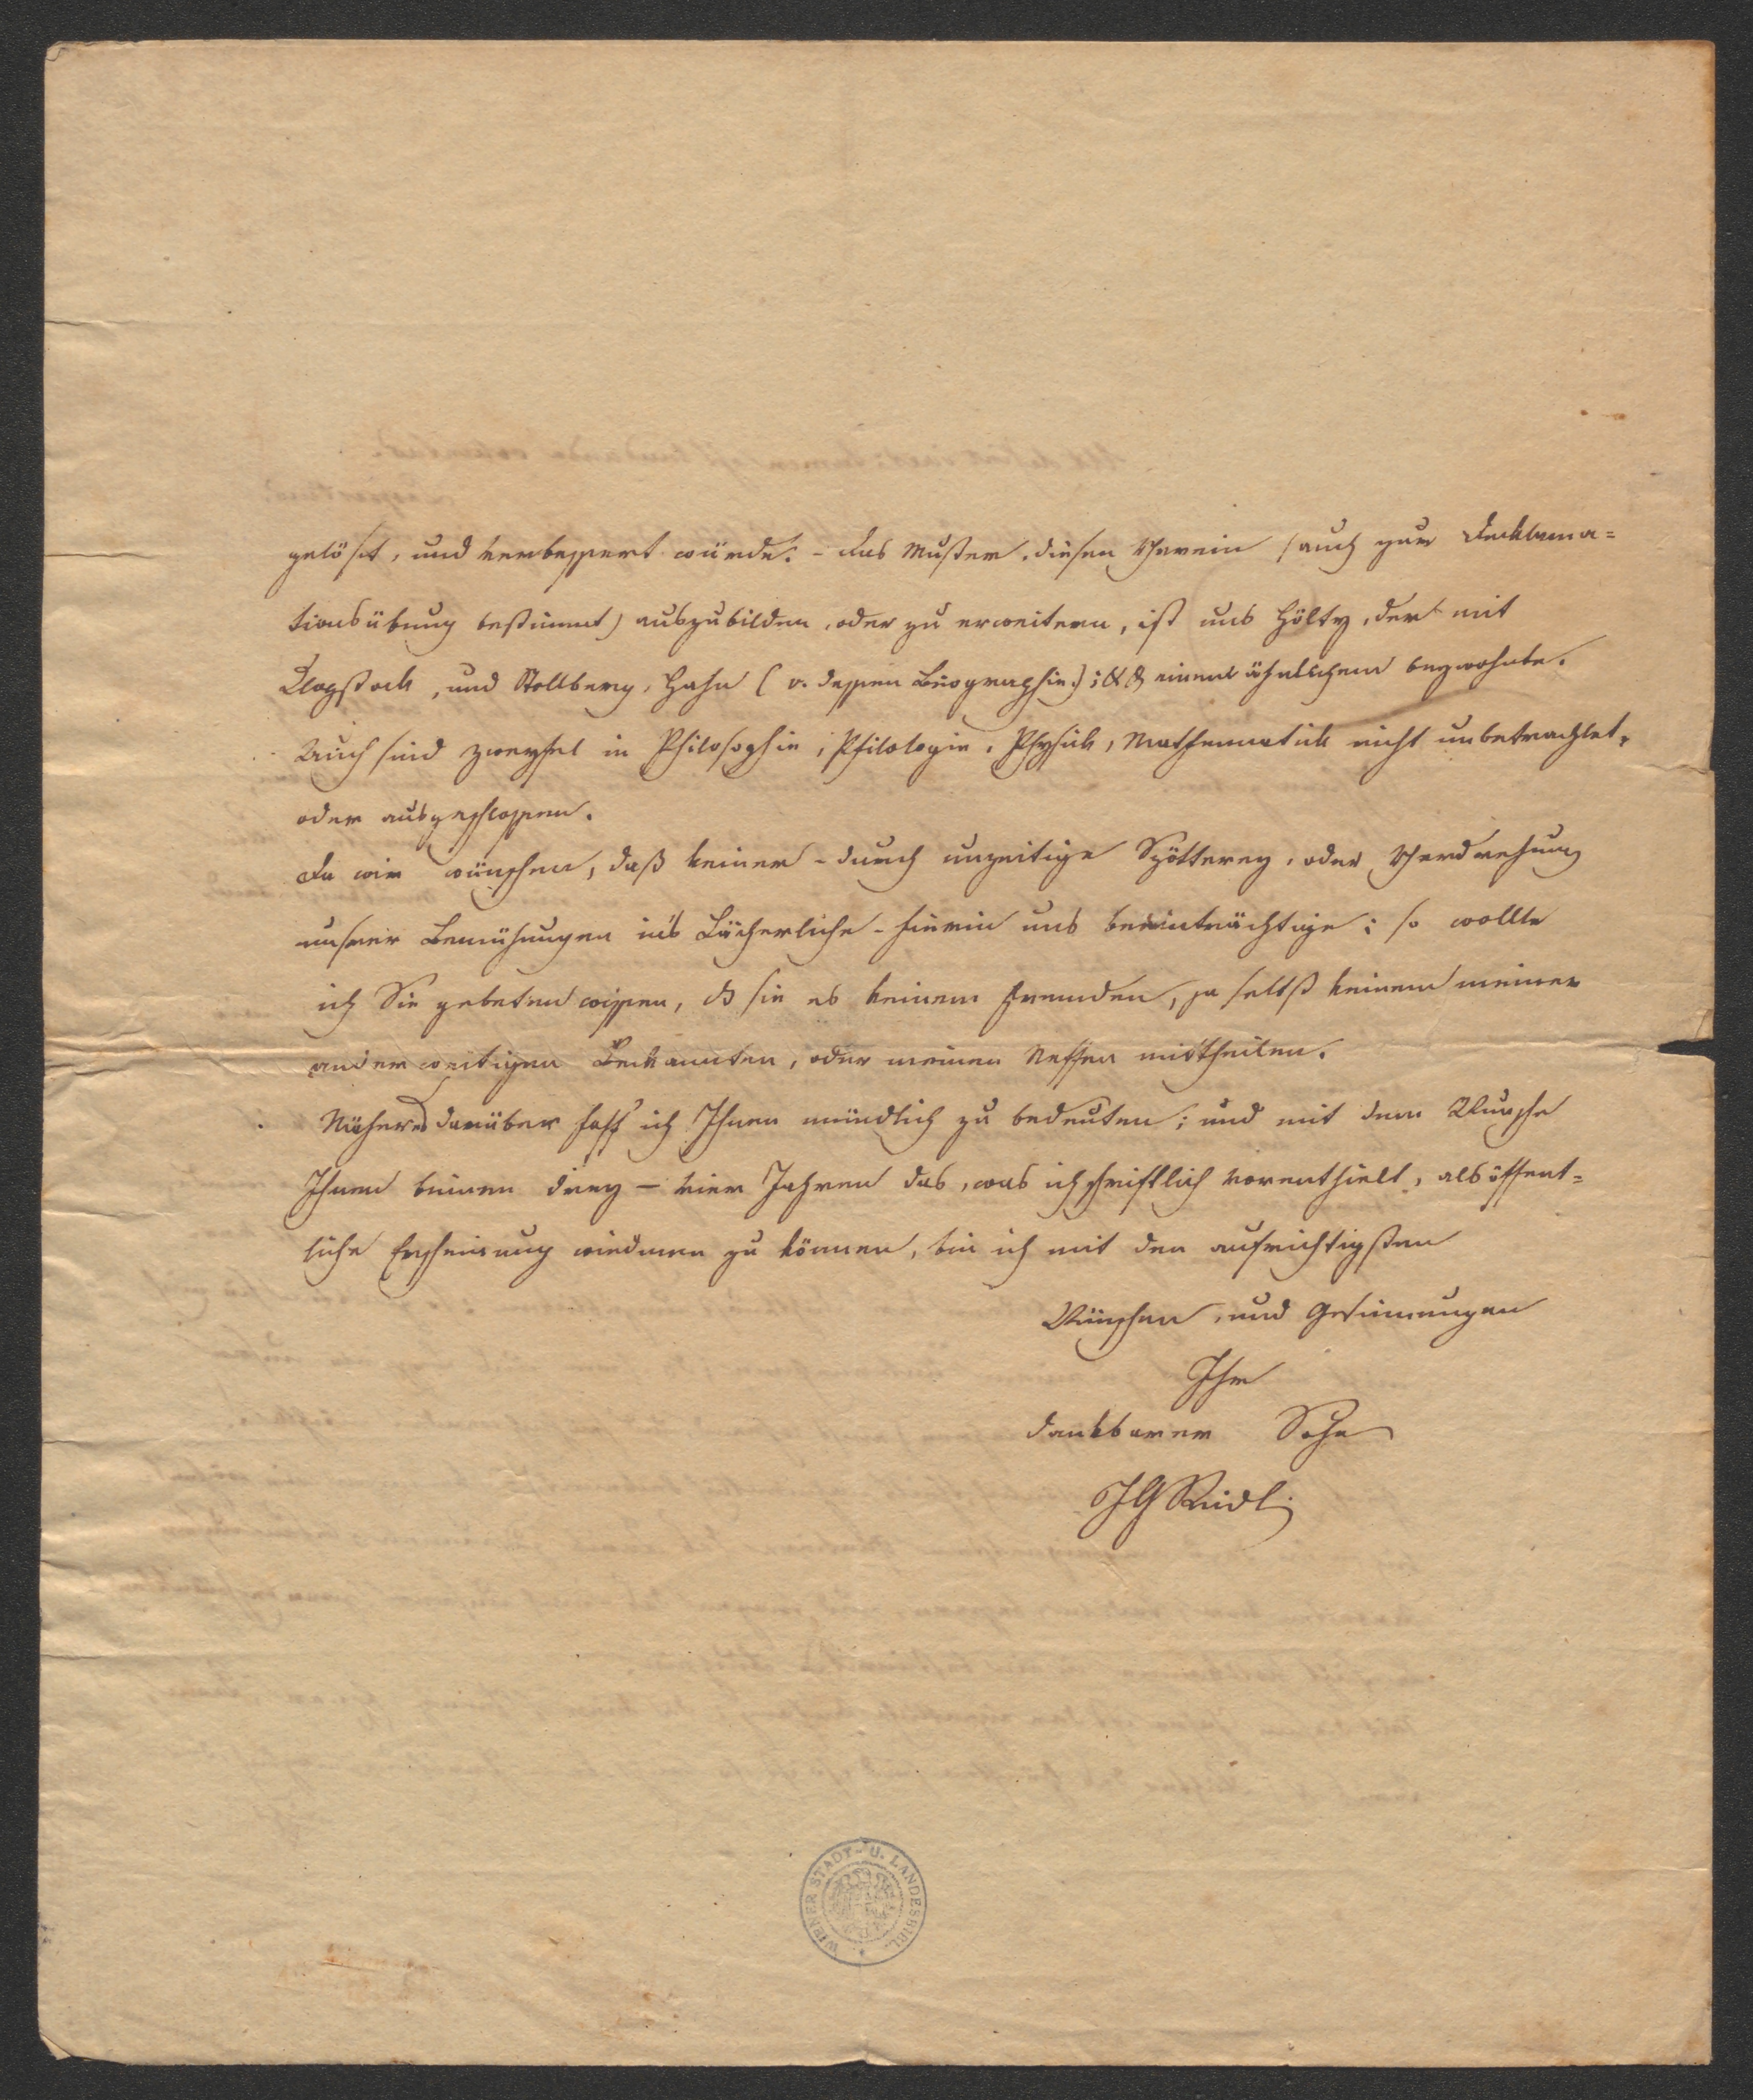 gelöset, und verbessert würde. – Das Muster, diesen Verein (auch zur Deklama=
tionsübung bestimmt) auszubilden, oder zu erweitern, ist uns Hölty, der mit
Klopstock, und Stollberg, Hahn (v. dessen Biographie.) ; & & einem ähnlichem beywohnte.
Auch sind Zweifel in Philosophie, Philologie, Physick, Mathematick nicht unbetrachtet,
oder ausgeschlossen.
Da wir wünschen, daß keiner – durch unzeitige Spötterey, oder Verdrehung
unsrer Bemühungen in's Lächerliche – hierin uns beeinträchtige; so wollte
ich Sie gebeten wissen, daß sie es keinem Fremden, ja selbst keinem meiner
anderweitigen Bekannten, oder meinen Neffen mittheilen.
Näheres darüber hoff' ich Ihnen mündlich zu bedeuten; und mit dem Wunsche
Ihnen binnen drey – vier Jahren das, was ich schriftlich vorenthielt, als öffent=
liche Erscheinung wiedmen zu können, bin ich mit den aufrichtigsten
Wünschen, und Gesinnungen
Ihr
dankbarer Sohn
JG Seidl
WIENER STADT- U. LANDESBIBL.